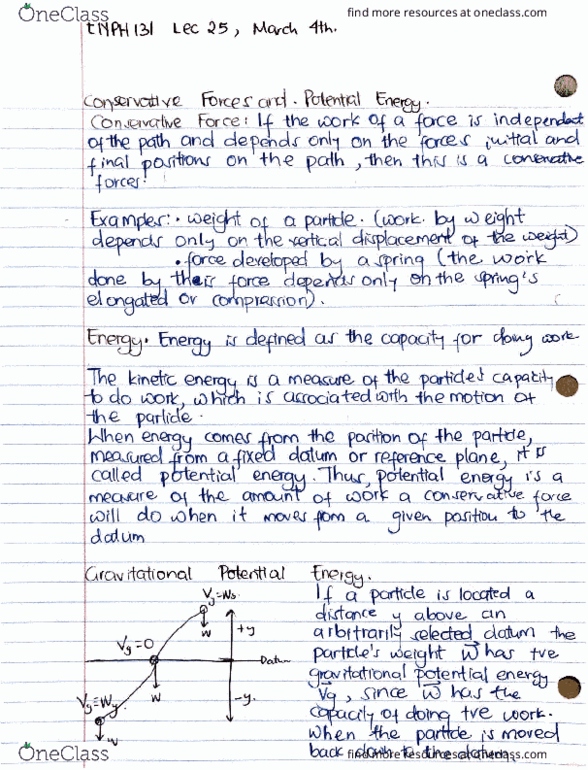 OneClass
find more resources at oneclass.com
ENPH131 Lec 25, March 4th.
Conservative Forces and. Potential Energy.
Conservative Force: If the work of a force is independent
of the path and depends only on the forces initial and
final positions on the path, then this is a conservative
forces.
Examples: • weight of a particle. (work by weight
depends only on the vertical displacement of the weight)
• force developed by a spring (the work
done by this force depends only on the spring's
elongated or compression).
Energy. Energy is defined as the capacity for doing work
The kinetic energy is a measure of the particle's capacity
to do work, which is associated with the motion of
the particle.
When energy comes from the position of the particle,
measured from a fixed datum or reference plane, it is
called potential energy. Thus, potential energy is a
measure of the amount of work a conservative force
will do when it moves from a given position to the
datum
Gravitational Potential Energy.
If a particle is located a
distance y above an
arbitrarily selected datum the
particle's weight W has tve
gravitational potential energy
Vg, since W has the
capacity of doing tve work.
when the particle is moved
back down to the datum
W
+y
Vg=0
Datum
W
-y.
Vg=Wy
W
OneClass
find more resources at oneclass.com